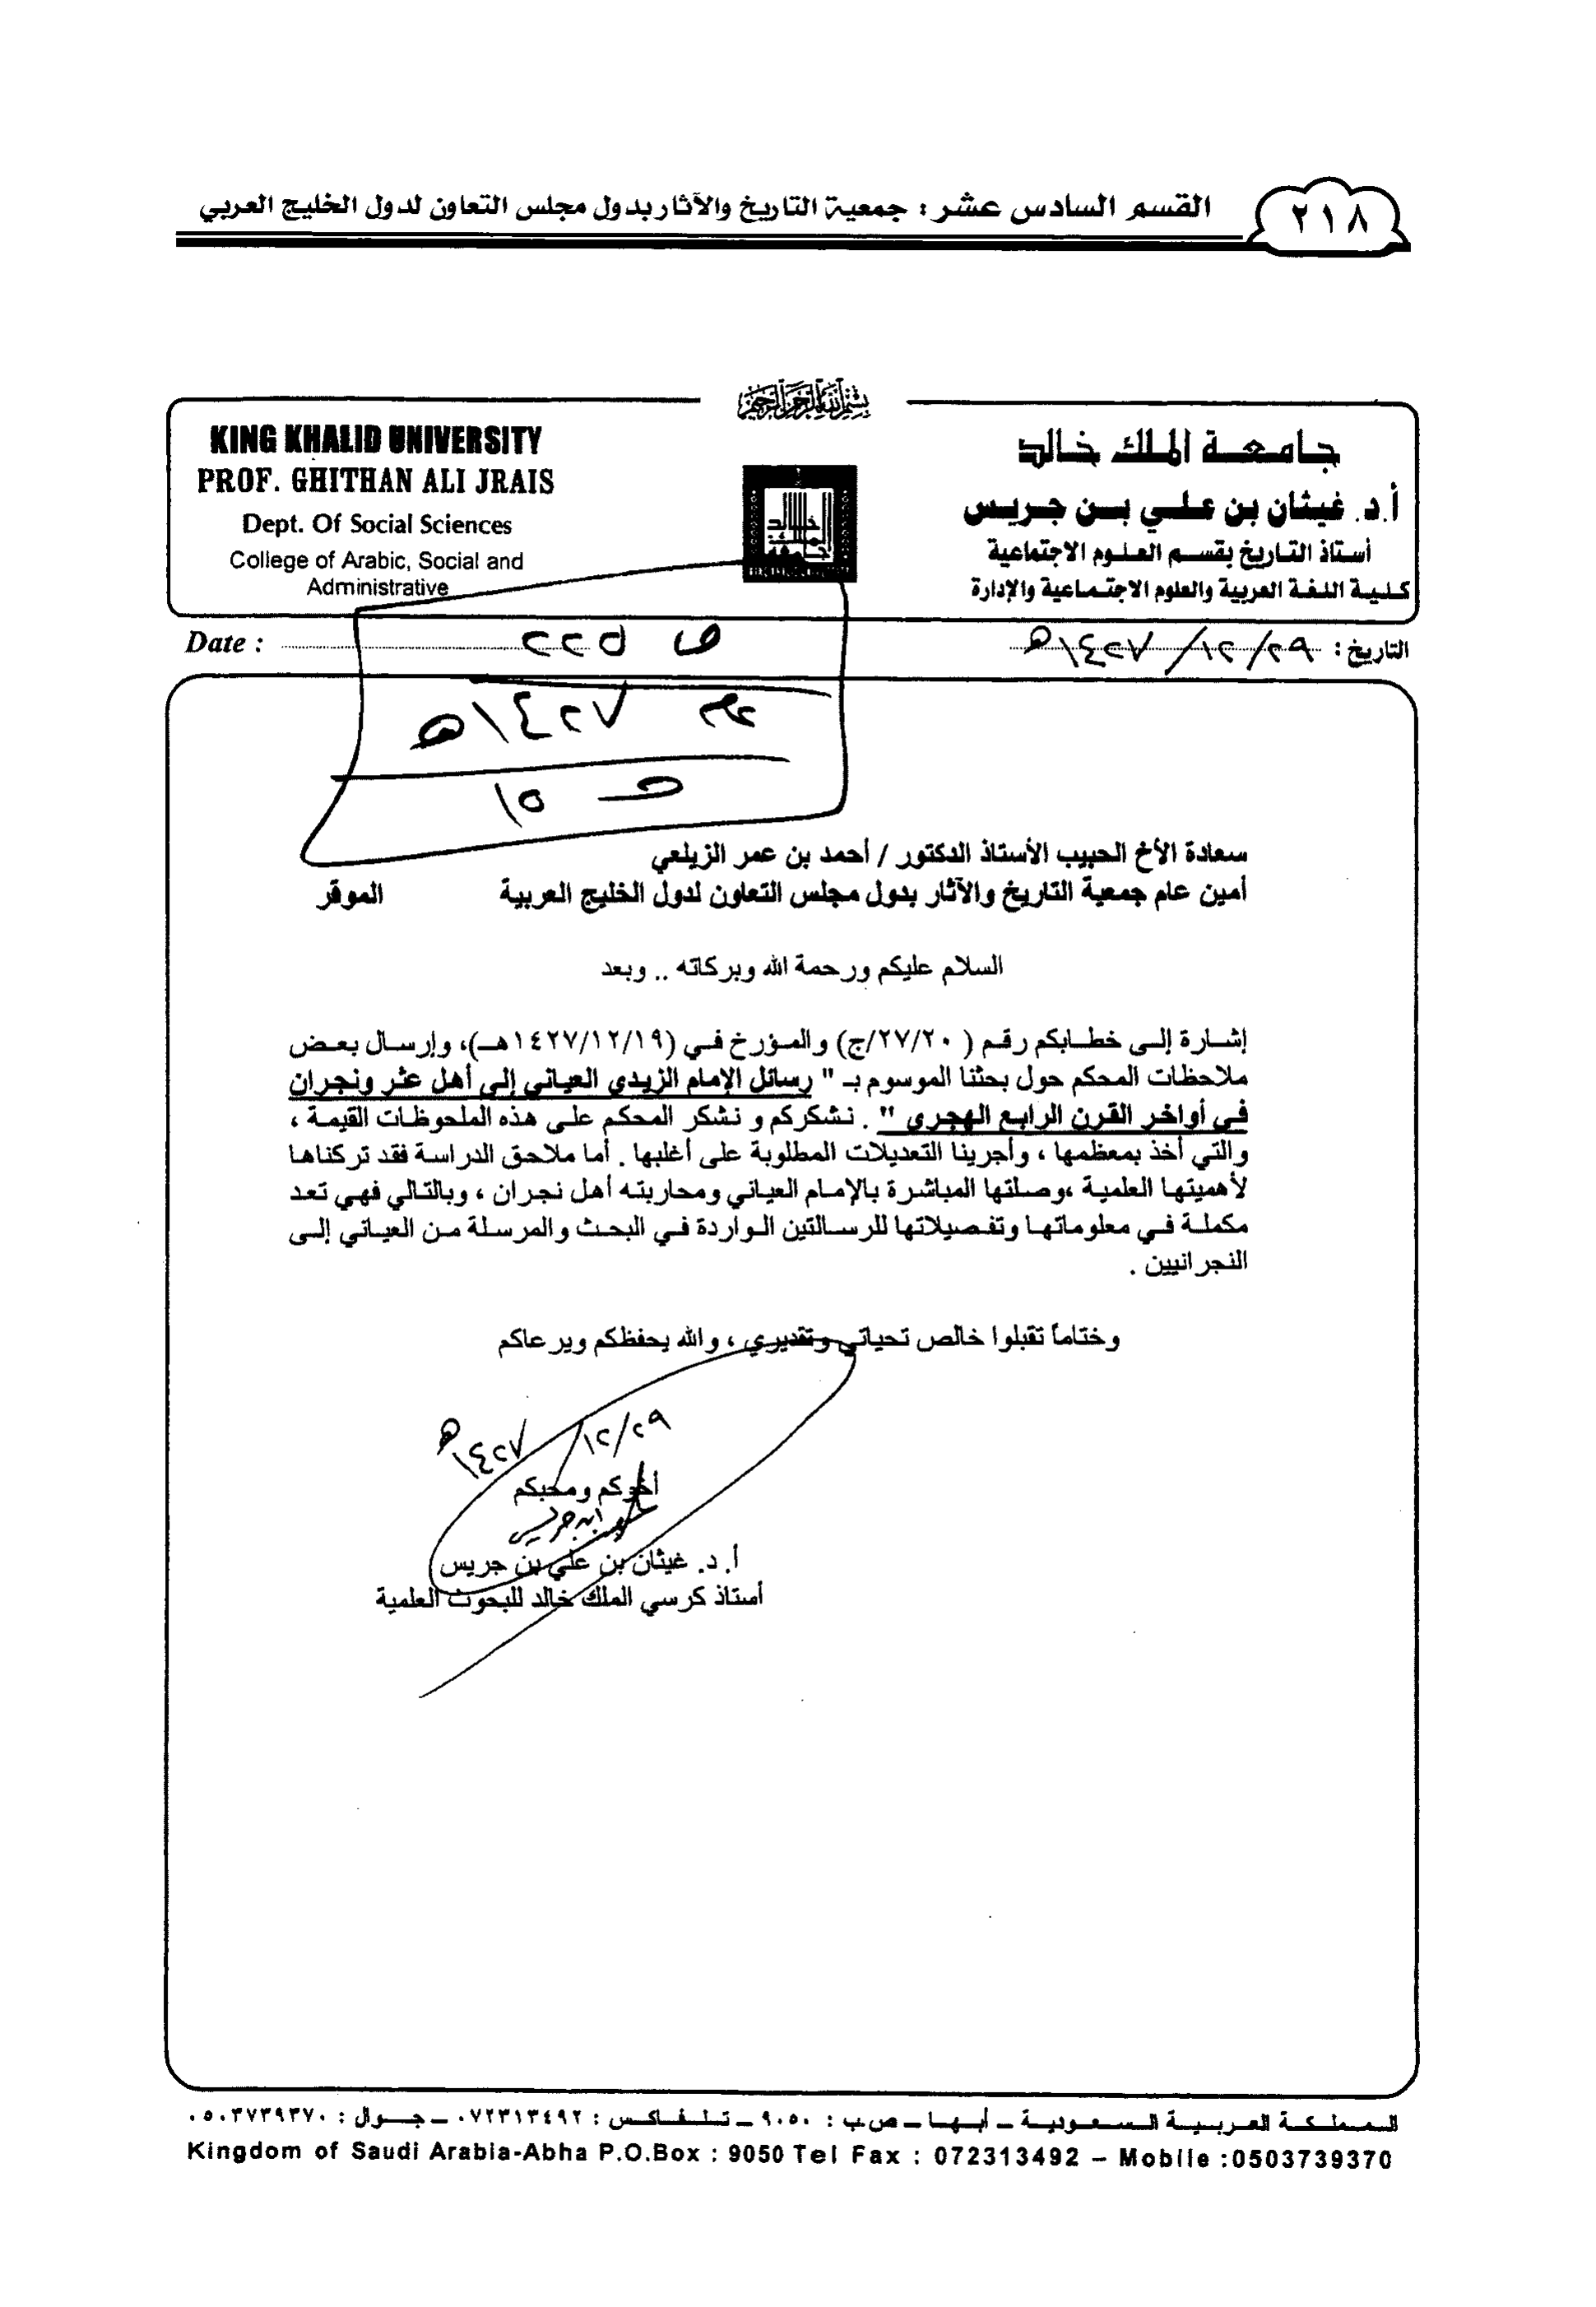 ٢١٨
القسم السادس عشر : جمعية التاريخ والآثار بدول مجلس التعاون لدول الخليج العربي
بسم الله الرحمن الرحيم
جامعة الملك خالد
أ.د. غيثان بن علي بن جريس
أستاذ التاريخ بقسم العلوم الاجتماعية
كلية اللغة العربية والعلوم الاجتماعية والإدارة
KING KHALID UNIVERSITY
PROF. GHITHAN ALI JRAIS
Dept. Of Social Sciences
College of Arabic, Social and
Administrative
التاريخ : ٢٩/ ١٢/ ١٤٢٧هـ
Date :
ص ٢٢٥
عام ١٤٢٧هـ
١٥
سعادة الأخ الحبيب الأستاذ الدكتور / أحمد بن عمر الزيلعي
أمين عام جمعية التاريخ والآثار بدول مجلس التعاون لدول الخليج العربية الموقر
السلام عليكم ورحمة الله وبركاته .. وبعد
إشارة إلى خطابكم رقم ( ٢٧/٢٠/ج) والمؤرخ في (١٤٢٧/١٢/١٩هـ)، وإرسال بعض
ملاحظات المحكم حول بحثنا الموسوم بـ " رسائل الإمام الزيدي العياني إلى أهل عثر ونجران
في أواخر القرن الرابع الهجري " . نشكركم و نشكر المحكم على هذه الملحوظات القيمة ،
والتي أخذ بمعظمها ، وأجرينا التعديلات المطلوبة على أغلبها . أما ملاحق الدراسة فقد تركناها
لأهميتها العلمية ،وصلتها المباشرة بالإمام العياني ومحاربته أهل نجران ، وبالتالي فهي تعد
مكملة في معلوماتها وتفصيلاتها للرسالتين الواردة في البحث والمرسلة من العياني إلى
النجرانيين .
وختاماً تقبلوا خالص تحياتي وتقديري ، والله يحفظكم ويرعاكم
٢٩/ ١٢/ ١٤٢٧هـ
أخوكم ومحبكم
ابن جريس
أ. د. غيثان بن علي بن جريس
أستاذ كرسي الملك خالد للبحوث العلمية
المملكة العربية السعودية – أبها – ص.ب : ٩٠٥٠ – تلفاكس : ٠٧٢٣١٣٤٩٢ – جوال : ٠٥٠٣٧٣٩٣٧٠
Kingdom of Saudi Arabia-Abha P.O.Box : 9050 Tel Fax : 072313492 – Mobile :0503739370